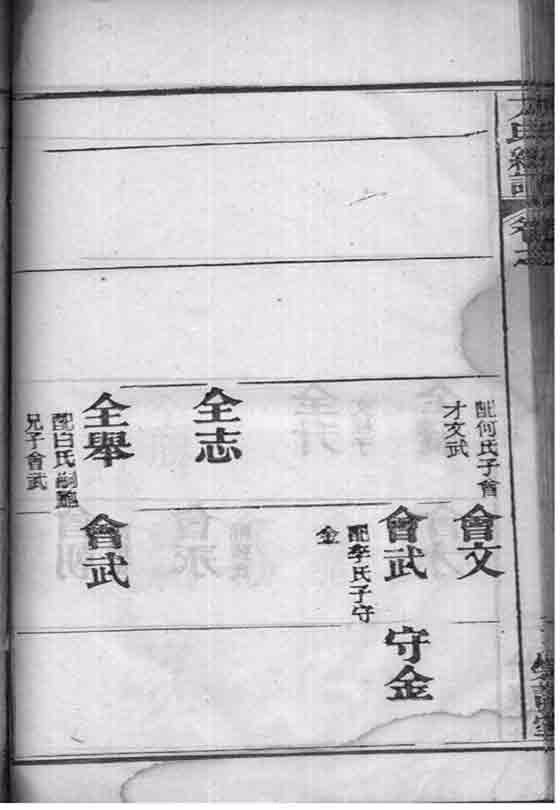 配何氏子會
才文武
全志
全舉
配白氏嗣胞
兄子會武
會文
會武
配李氏子守
金
會武
守金